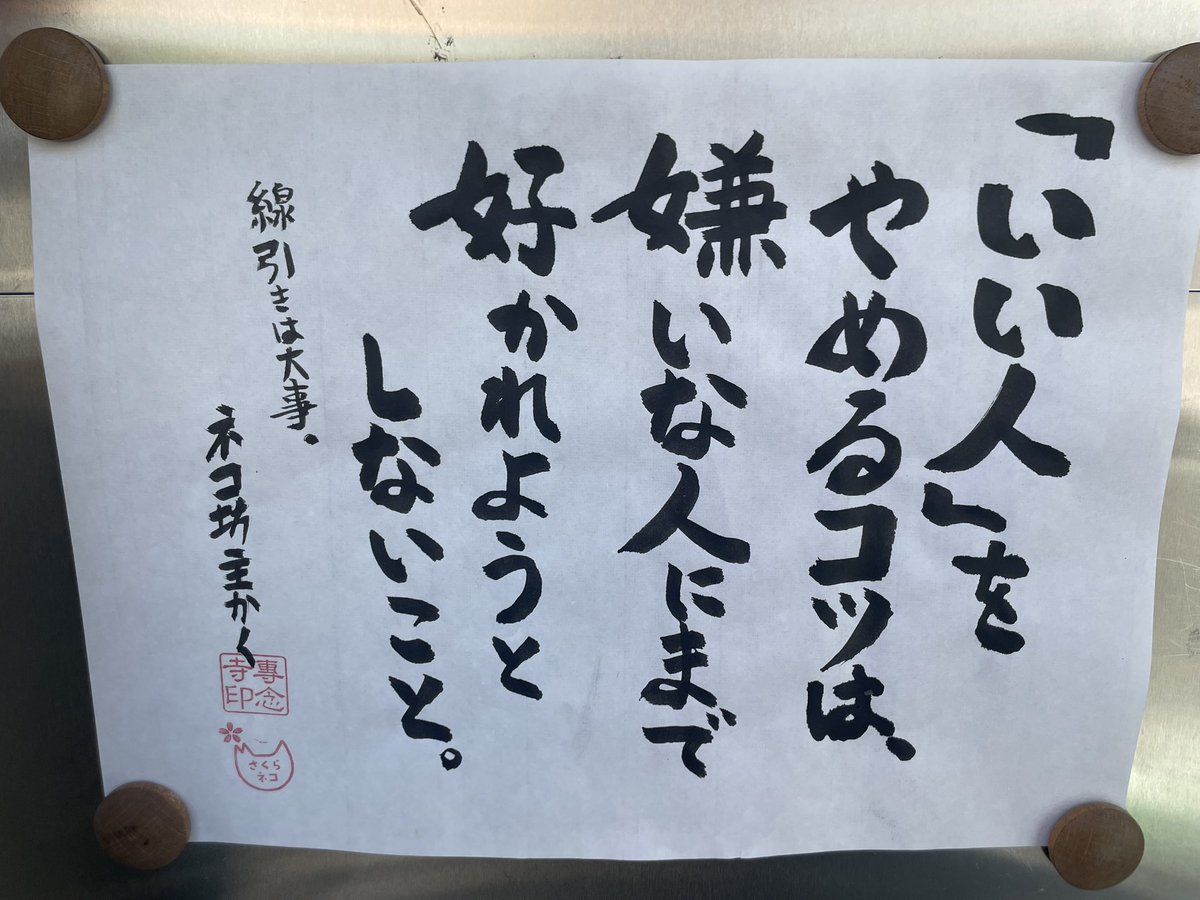 「いい人」を
やめるコツは、
嫌いな人にまで
好かれようと
しないこと。
線引きは大事。
ネコ坊主かく
専念
寺印
さくら
ネコ